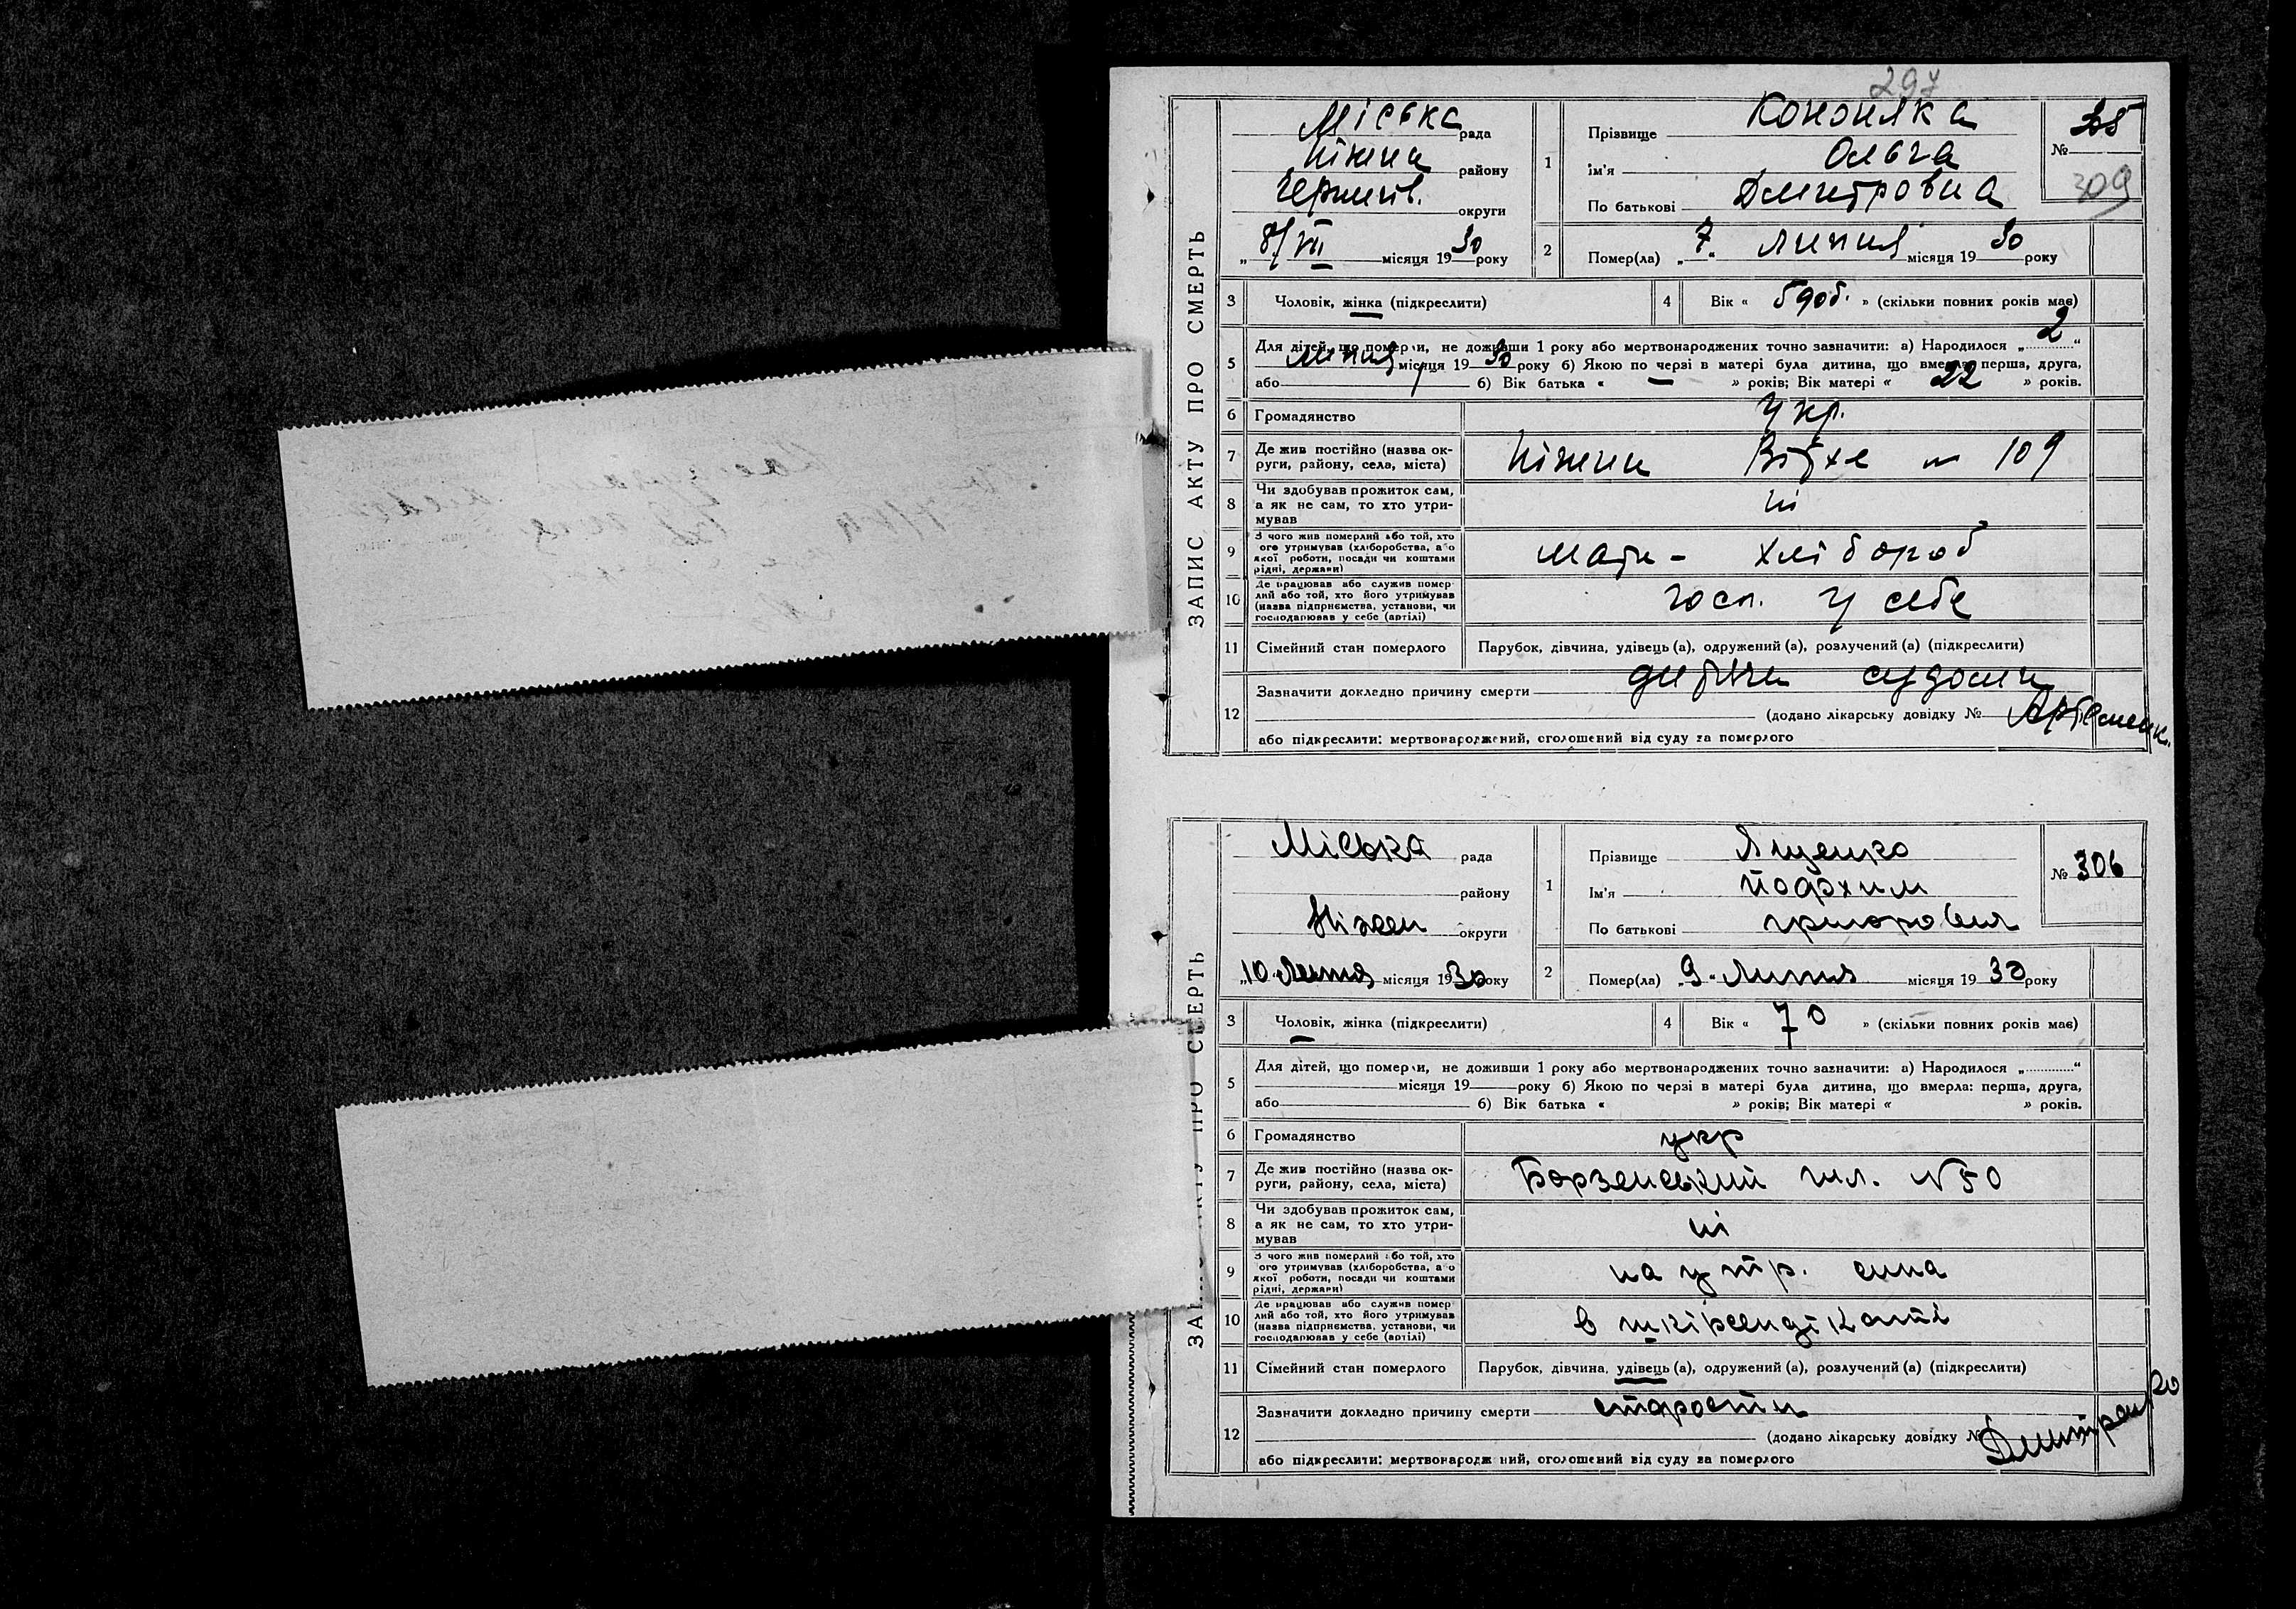 297
ЗАПИС АКТУ ПРО СМЕРТЬ
Міська рада
Ніжин району
Черніг. округи
„8/VII місяця 1930 року
1
Прізвище Кононяка
Ім'я Ольга
По батькові Дмитровна
№ 305
309
2 Помер(ла) „7“ липня місяця 1930 року
3 Чоловік, жінка (підкреслити)
4 Вік « 5 доб. » (скільки повних років має)
5 Для дітей, що померли, не доживши 1 року або мертвонароджених точно зазначити: а) Народилося „2“
липня місяця 1930 року б) Якою по черзі в матері була дитина, що вмерла: перша, друга,
або б) Вік батька « — » років; Вік матері « 22 » років.
6 Громадянство Укр.
7 Де жив постійно (назва ок-
руги, району, села, міста) Ніжин № 109
8 Чи здобував прожиток сам,
а як не сам, то хто утри-
мував ні
9 З чого жив померлий або той, хто
ого утримував (хліборобства, або
якої роботи, посади чи коштами
рідні, держави) мати - хлібороб
10 Де працював або служив помер-
лий або той, хто його утримував
(назва підприємства, установи, чи
господарював у себе (артілі) госп. у себе
11 Сімейний стан померлого Парубок, дівчина, удівець (а), одружений (а), розлучений (а) (підкреслити)
12 Зазначити докладно причину смерти дитячи судоми
(додано лікарську довідку №
або підкреслити: мертвонароджений, оголошений від суду за померлого
Артеменк.
ЗАПИС АКТУ ПРО СМЕРТЬ
Міська рада
району
Ніжен округи
„10 Липня місяця 1930 року
1
Прізвище Ященко
Ім'я Йофхим
По батькові григоровия
№ 306
2 Помер(ла) „9“ Липня місяця 1930 року
3 Чоловік, жінка (підкреслити)
4 Вік « 70 » (скільки повних років має)
5 Для дітей, що померли, не доживши 1 року або мертвонароджених точно зазначити: а) Народилося „“
місяця 19 року б) Якою по черзі в матері була дитина, що вмерла: перша, друга,
або б) Вік батька « » років; Вік матері « » років.
6 Громадянство укр
7 Де жив постійно (назва ок-
руги, району, села, міста) Борзенський шл. № 50
8 Чи здобував прожиток сам,
а як не сам, то хто утри-
мував ні
9 З чого жив померлий або той, хто
ого утримував (хліборобства, або
якої роботи, посади чи коштами
рідні, держави) на утр. сина
10 Де працював або служив помер-
лий або той, хто його утримував
(назва підприємства, установи, чи
господарював у себе (артілі) в шкірсендікаті
11 Сімейний стан померлого Парубок, дівчина, удівець (а), одружений (а), розлучений (а) (підкреслити)
12 Зазначити докладно причину смерти старости
(додано лікарську довідку №
або підкреслити: мертвонароджений, оголошений від суду за померлого